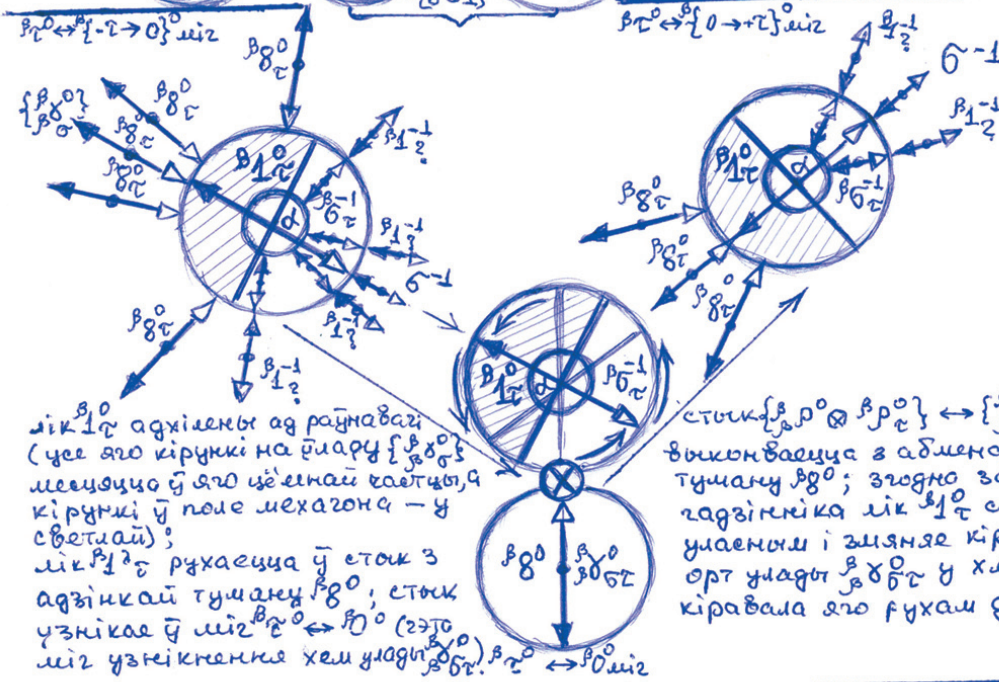 βτ⁰↔β{-τ→0}⁰ міг
βτ⁰↔β{0→+τ}⁰ міг
β8τ⁰
β1?⁻¹
б⁻¹
{ββγσ⁰}
β8τ⁰
β8τ⁰
β8τ⁰
β1τ⁰
α
ββτ⁻¹
β1?⁻¹
β1?⁻¹
σ⁻¹
β1?⁻¹
β8τ⁰
β1?⁻¹
β1?⁻¹
β1τ⁰
α
ββτ⁻¹
β8τ⁰
β8τ⁰
β8τ⁰
β1τ⁰
α
ββτ⁻¹
β8⁰
ββγбτ⁰
лік β1τ⁰ адхілены ад раўнавагі
(усе яго кірункі на ўладу {ββγσ⁰}
месцяцца ў яго цёмнай частцы, а
кірункі ў поле мехагона – у
светлай);
лік β1τ⁰ рухаецца ў стык з
адзінкай туману β8⁰; стык
узнікае ў міг βτ⁰ ↔ β0⁰ (гэта
міг узнікнення хем улады ββγбτ⁰).
βτ⁰ ↔ β0⁰ міг
стык {ββρ⁰ ⊗ βρτ⁰} ↔ {
выконваецца з абмен
туману β8⁰; згодна з
гадзінніка лік β1τ⁰ с
уласным і змяняе кір
орт улады ββγбτ⁰ у х
кіравала яго рухам